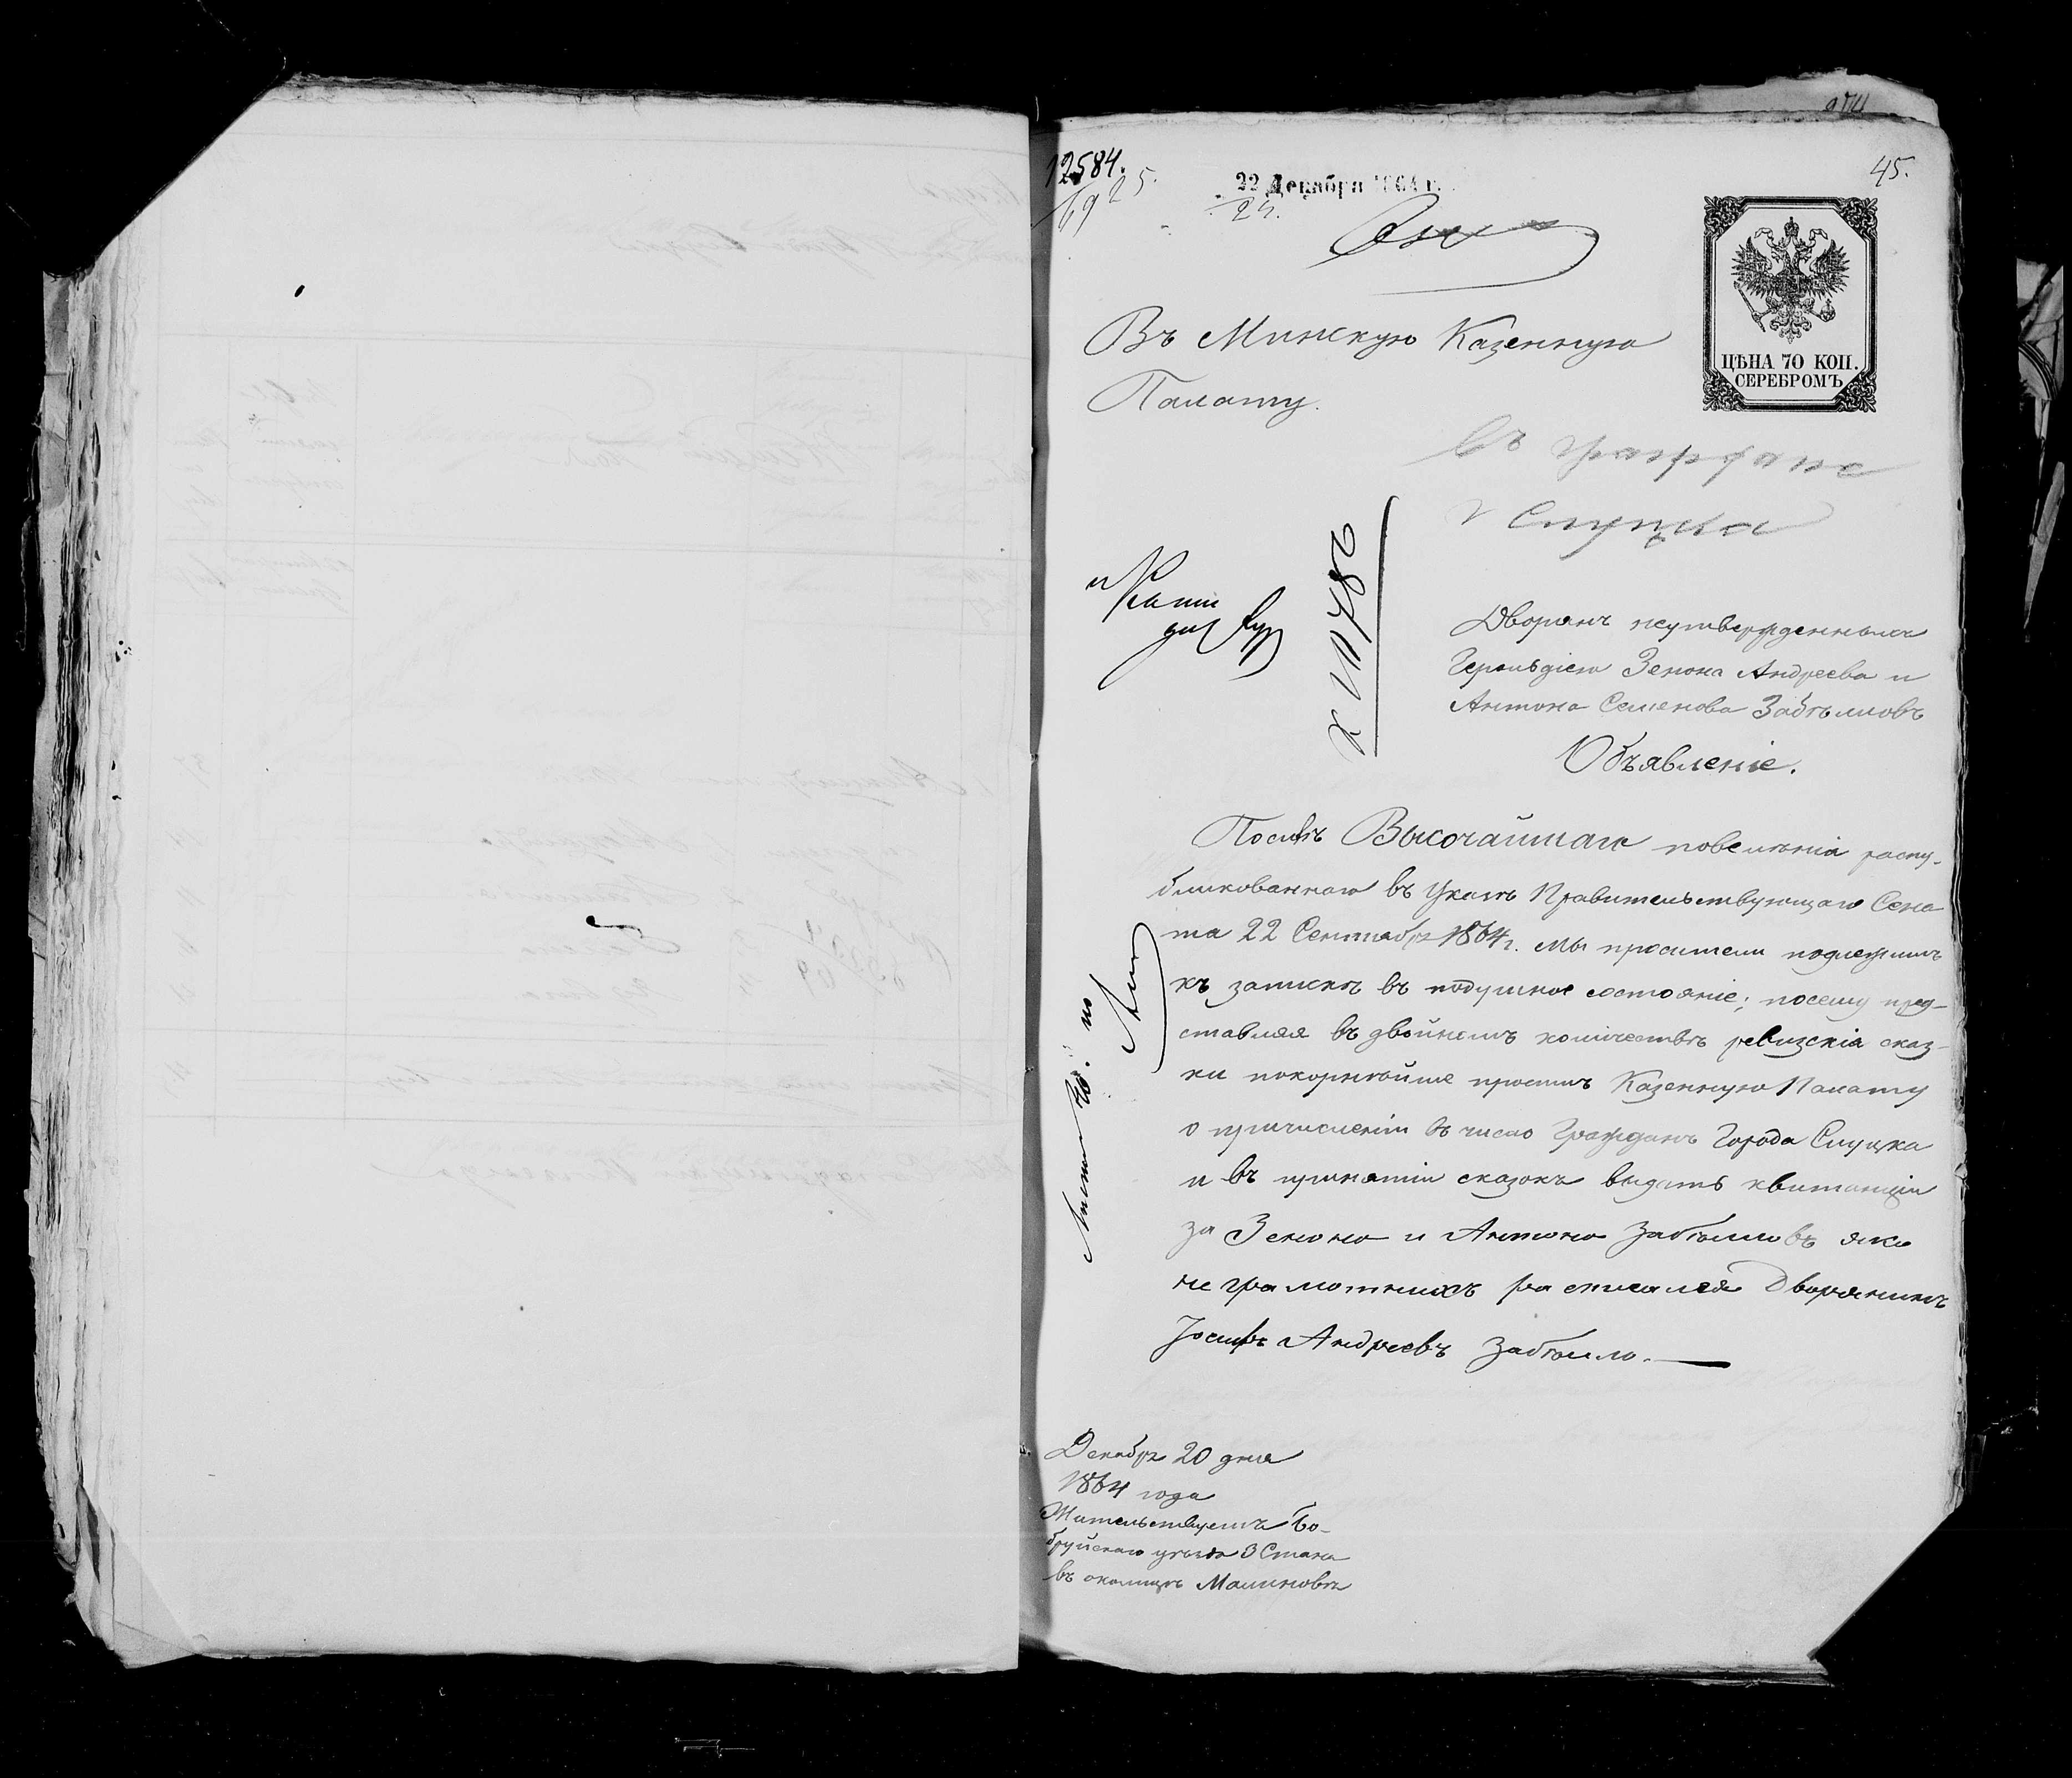 12584.
6925.
22 Декабря 1864 г.
24.
45.
ЦѢНА 70 КОП.
СЕРЕБРОМЪ
Въ Минскую Казенную
Палату.
въ граждане
г Слуцка
Дворянъ неутвержденныхъ
Герольдіею Зенона Андреева и
Антона Семенова Забѣлловъ
Объявленіе.
Послѣ Высочайшаго повелѣнія распу-
бликованнаго въ Указѣ Правительствующаго Сена
та 22 Сентября 1864 г. мы просители подлежимъ
къ запискѣ въ подушное состояніе; посему пред-
ставляя въ двойномъ количествѣ ревизскія сказ-
ки покорнѣйше просимъ Казенную Палату
о причисленіи въ число Гражданъ Города Слуцка
и въ принятіи сказокъ выдать квитанціи
за Зенона и Антона Забѣлловъ яко
не грамотныхъ росписался Дворянинъ
Іосифъ Андреевъ Забѣлло.
Декабря 20 дня
1864 года
Жительствуемъ Бо-
бруйскаго уѣзда 3 Стана
въ околицѣ Малиновкѣ